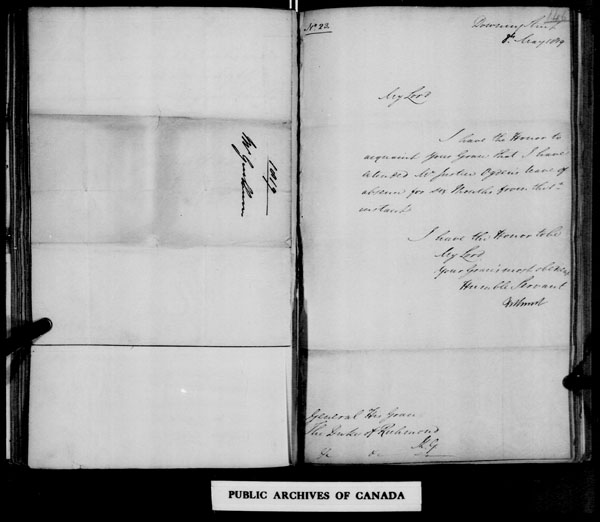 1819
Nº 23.
Downing Street
8th May 1819
My Lord
I have the Honor to
acquaint Your Grace that I have
extended Mr Justice Ogden's leave of
absence for six Months from the
instant.
I have the Honor to be
My Lord
Your Grace's most obedient
Humble Servant
Bathurst
General His Grace
The Duke of Richmond
K.G.
&c &c
PUBLIC ARCHIVES OF CANADA